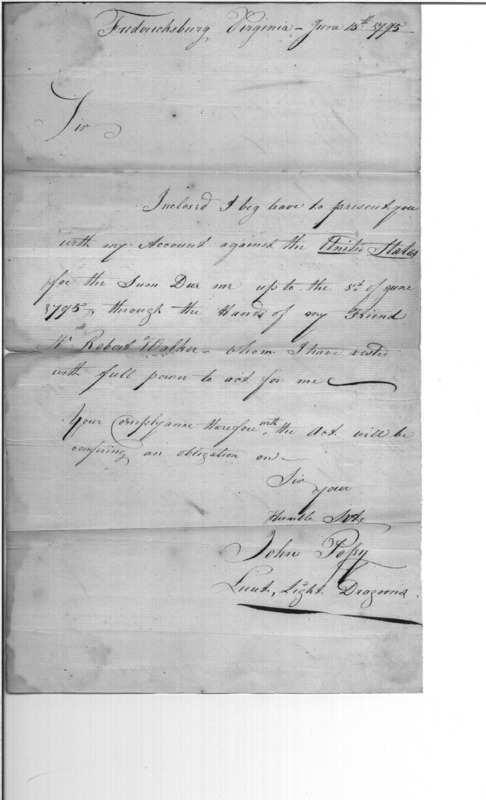 Fredericksburg Virginia - June 15th 1795
Sir
Inclosed I beg leave to present you
with my Account against the United States
for the Sum Due me up to the of June
1795, through the Hands of my Friend
Mr Robert Walker - whom I have vested
with full power to act for me
Your complyance therefore with the Act will be
confering an obligation on
Sir
your
Humble Servt
John
Lieut. Light Dragoons